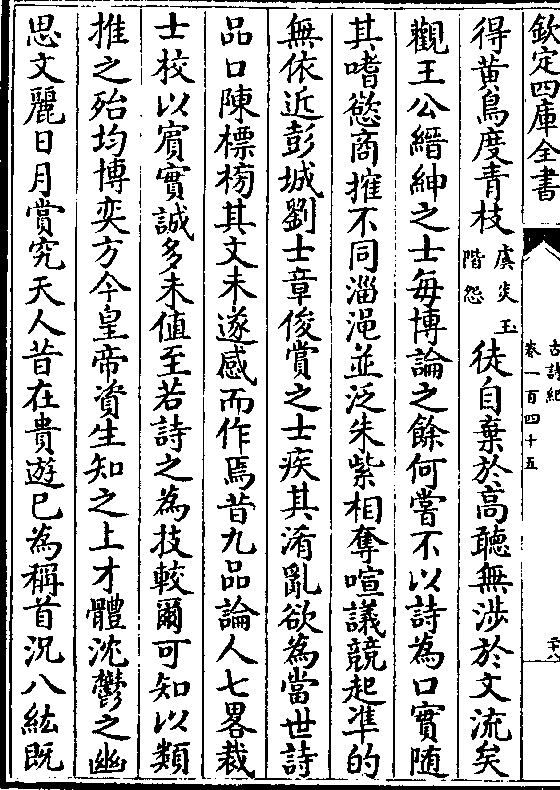 欽定四庫全書
古詩紀
卷一百四十五
得黄鳥度青枝虞炎玉階怨徒自棄於高聽無涉於文流矣
觀王公縉紳之士每博論之餘何嘗不以詩為口實隨
其嗜慾商搉不同淄澠並泛朱紫相奪喧議競起凖的
無依近彭城劉士章俊賞之士疾其淆亂欲為當世詩
品口陳標榜其文未遂感而作焉昔九品論人七畧裁
士校以賔實誠多未值至若詩之為技較爾可知以類
推之殆均博奕方今皇帝資生知之上才體沈鬱之幽
思文麗日月賞究天人昔在貴遊已為稱首況八紘既